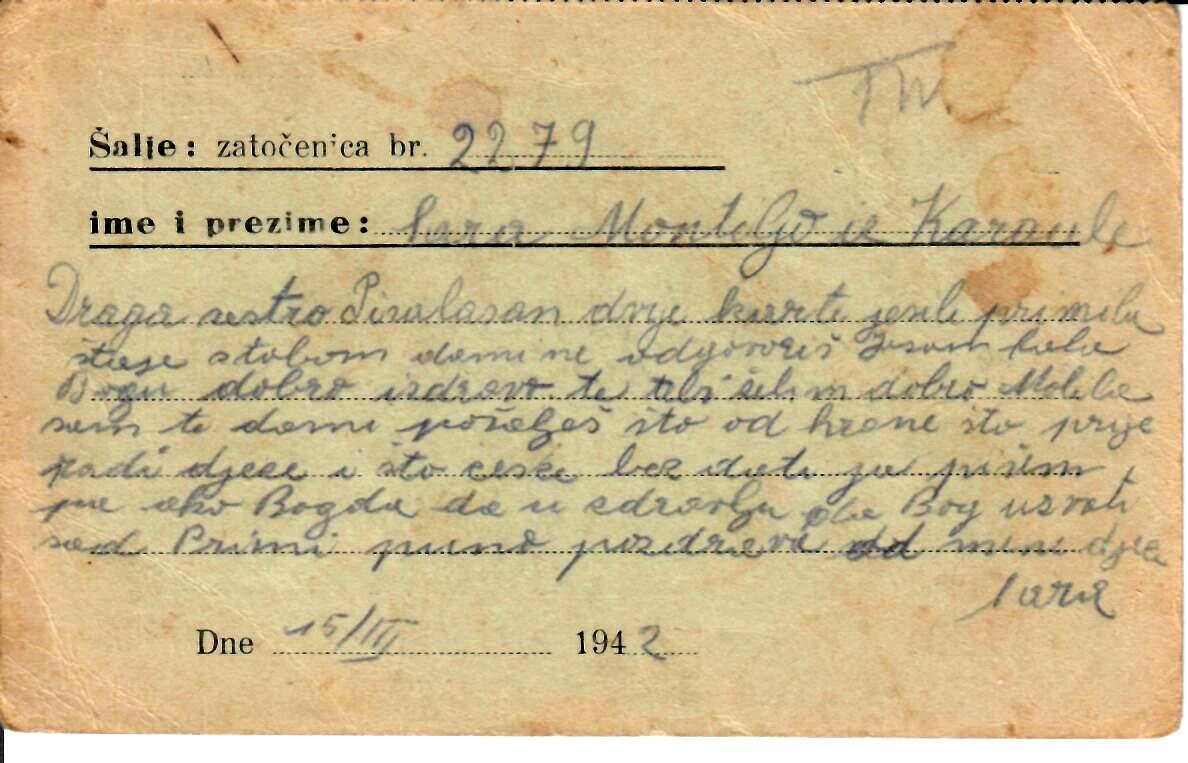 Šalje: zatočenica br. 2279
ime i prezime: Sara Monteljo iz Karaule
Draga sestro Pisalasan dvije karti jesili primila
štaje stobom dami ne odgovoriš Jasam hvala
Bogu dobro izdravo te želim dobro Molila
sam te dami pošalješ što od hrane što prije
radi djece i što
pa ako Bogda da u zdravlju Bog uzvrati
sad Primi puno pozdrava od mene djece
Sara
Dne 15/III 1942